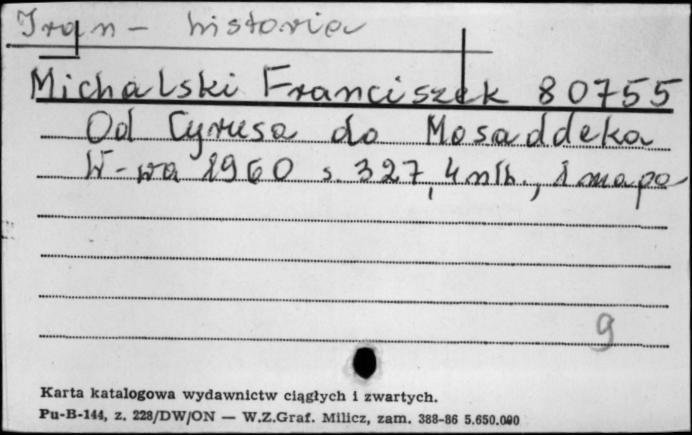 Iran - historia
Michalski Franciszek 80755
Od Cyrusa do Mosaddeka
W-wa 1960 s. 327, 4 nlb., 1 mapa
9
Karta katalogowa wydawnictw ciągłych i zwartych.
Pu-B-144, z. 228/DW/ON — W.Z.Graf. Milicz, zam. 388-86 5.650.000